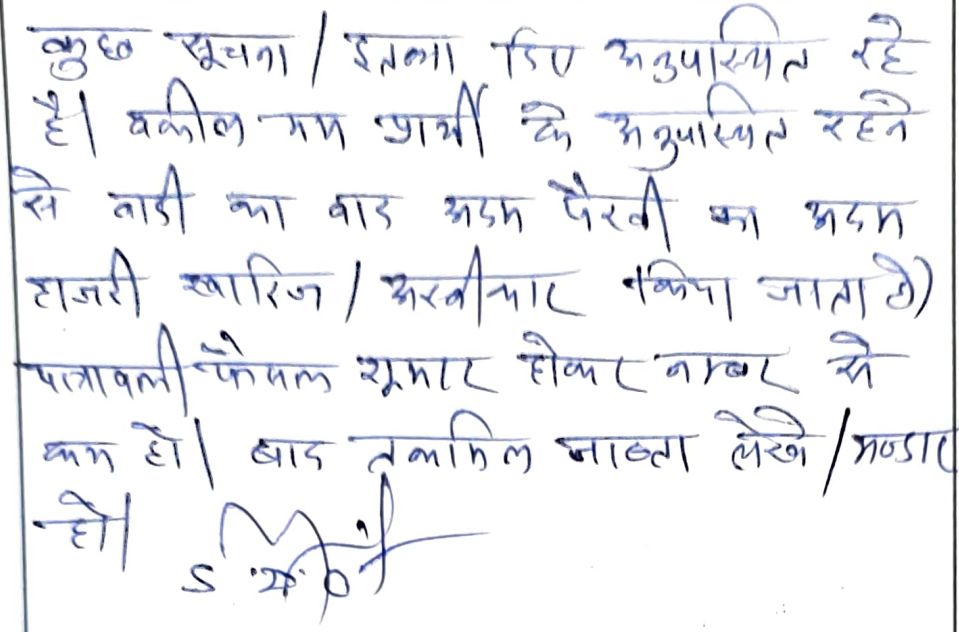 कुछ सूचना / इतला दिए अनुपस्थित रहे
है। वकील मय प्रार्थी के अनुपस्थित रहने
से वादी का वाद अदम पैरवी का अदम
हाजरी खारिज / अस्वीकार किया जाता है)
पत्रावली फैसल शुमार होकर नम्बर से
कम हो। बाद तकमिल जाब्ता लेखे / भण्डार
हो।